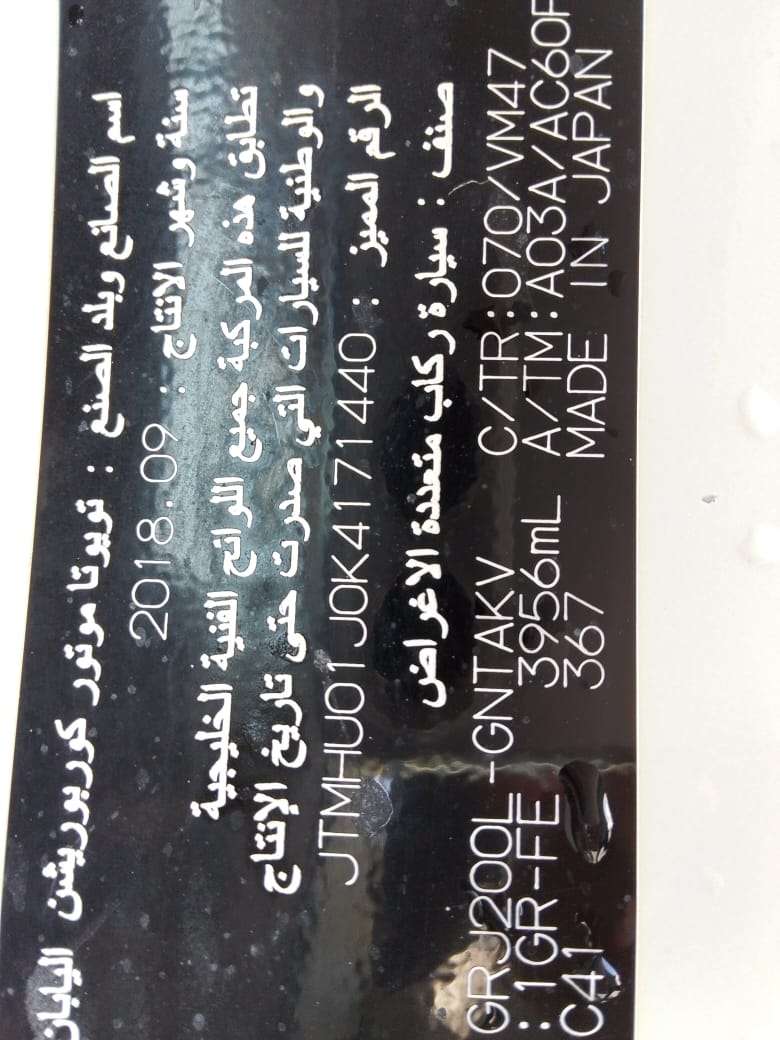 اسم الصانع وبلد الصنع : تويوتا موتور كوربوريشن اليابان
سنة وشهر الانتاج : 2018.09
تطابق هذه المركبة جميع اللوائح الفنية الخليجية
والوطنية للسيارات التي صدرت حتى تاريخ الإنتاج
الرقم المميز : JTMHU01J0K4171440
صنف : سيارة ركاب متعددة الاغراض
GRJ200L-GNTAKV C/TR:070/VM47
:1GR-FE 3956mL A/TM:A03A/AC60F
C41 367 MADE IN JAPAN